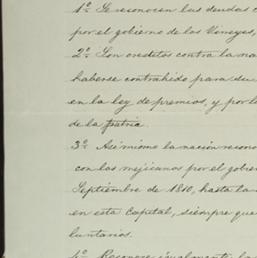 1º Se reconocen las deudas c
por el gobierno de los Vireyes,
2º Son creditos contra la na
haberse contrahido para su
en la ley de premios, y por l
de la patria.
3º Asímismo la nacion recono
con los mejicanos por el gobier
Septiembre de 1810, hasta la
en esta Capital, siempre que
luntarios.
4º Reconoce igualmente la